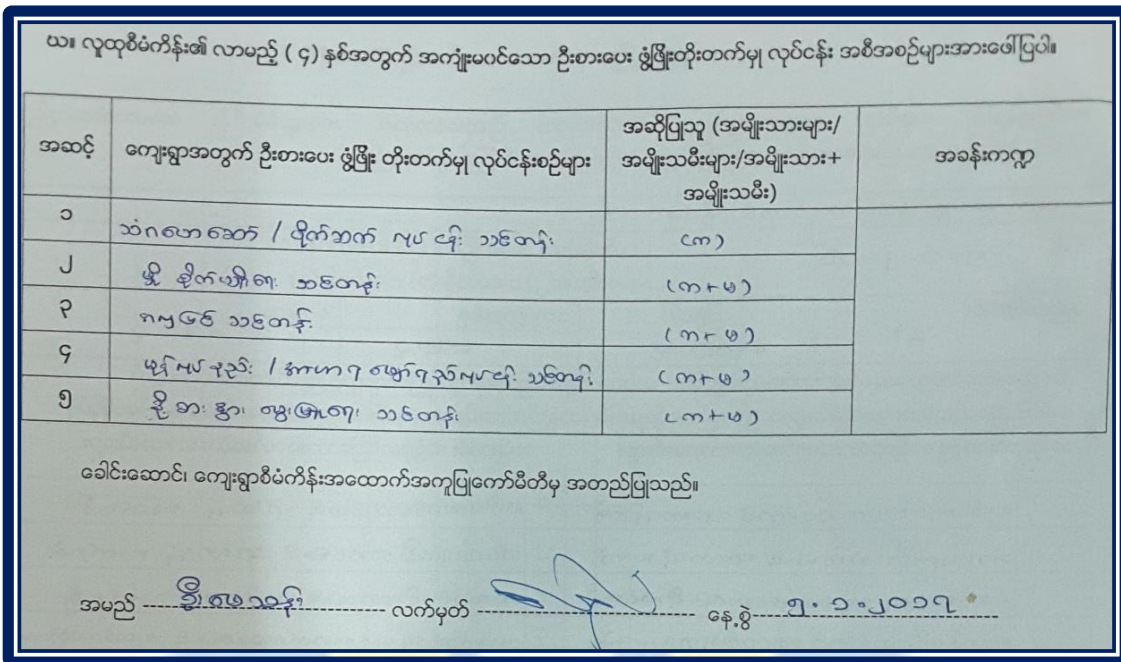 ဃ။ လူထုစီမံကိန်း၏ လာမည့် ( ၄) နှစ်အတွက် အကျုံးမဝင်သော ဦးစားပေး ဖွံ့ဖြိုးတိုးတက်မှု လုပ်ငန်း အစီအစဉ်များအားဖော်ပြပါ။
အဆင့် ကျေးရွာအတွက် ဦးစားပေး ဖွံ့ဖြိုး တိုးတက်မှု လုပ်ငန်းစဉ်များ အဆိုပြုသူ (အမျိုးသားများ/
အမျိုးသမီးများ/အမျိုးသား+
အမျိုးသမီး) အခန်းကဏ္ဍ
၁ သံဂဟေဆော် / ပိုက်ဆက် လုပ်ငန်း သင်တန်း (က)
၂ မှို စိုက်ပျိုးရေး သင်တန်း (က+မ)
၃ သင်တန်း (က+မ)
၄ မုန့်လုပ်နည်း / လုပ်ငန်း သင်တန်း (က+မ)
၅ နို့စားနွား မွေးမြူရေး သင်တန်း (က+မ)
ခေါင်းဆောင်၊ ကျေးရွာစီမံကိန်းအထောက်အကူပြုကော်မီတီမှ အတည်ပြုသည်။
အမည် ဦးဖေသန်း လက်မှတ် နေ့စွဲ ၅.၁.၂၀၁၇